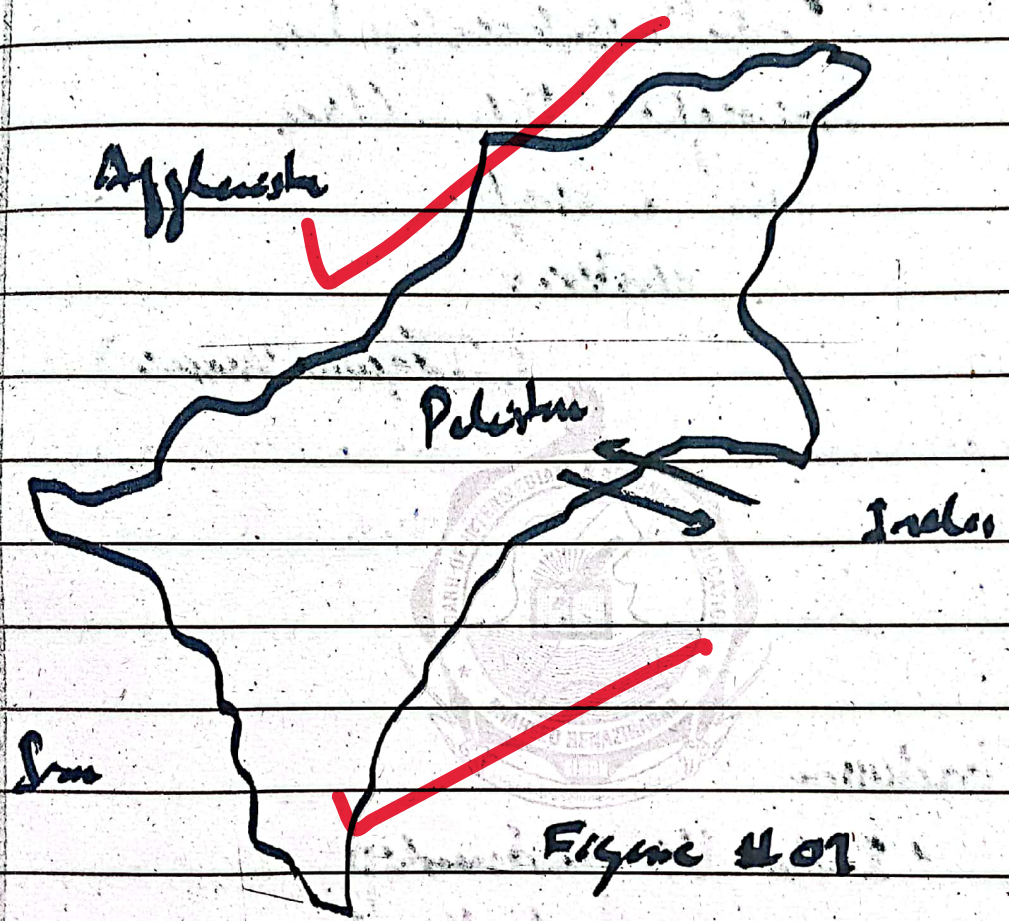 Afghanistan
Pakistan
India
Iran
Figure # 01